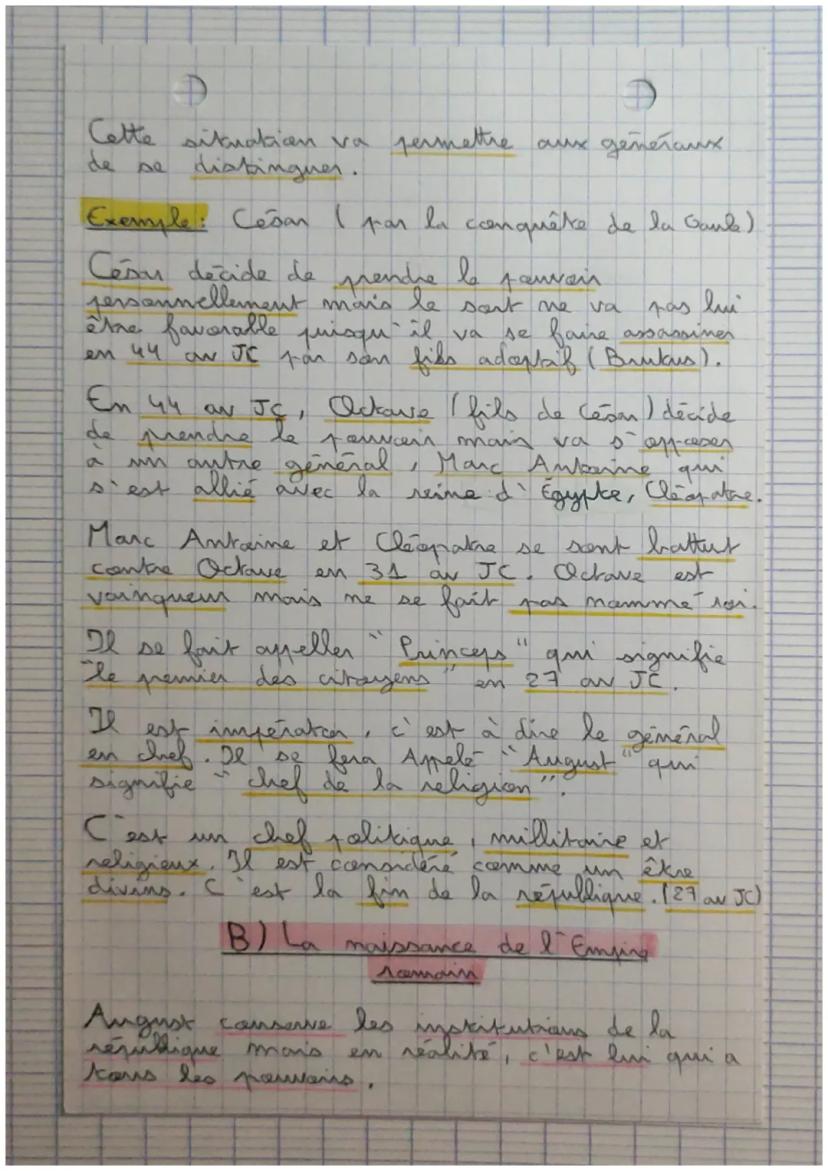 Cette situation va permettre aux généraux
de se distinguer.
Exemple: César ( par la conquête de la Gaule)
César décide de prendre le pouvoir
personnellement mais le sort ne va pas lui
être favorable puisqu'il va se faire assassiner
en 44 av JC par son fils adoptif (Brutus).
En 44 av JC, Octave (fils de César) décide
de prendre le pouvoir mais va s'opposer
à un autre général, Marc Antoine qui
s'est allié avec la reine d'Égypte, Cléopatre.
Marc Antoine et Cléopatre se sont battut
contre Octave en 31 av JC. Octave est
vainqueur mais ne se fait pas nommé roi.
Il se fait appeller "Princeps" qui signifie
"le premier des citoyens" en 27 av JC.
Il est impérator, c'est à dire le général
en chef. Il se fera Appelé "August" qui
signifie "chef de la religion".
C'est un chef politique, millitaire et
religieux. Il est consodéré comme un être
divins. C'est la fin de la république. (27 av JC)
B) La naissance de l'Empire
romain
August conserve les institutions de la
république mais en réalité, c'est lui qui a
tous les pouvoirs.